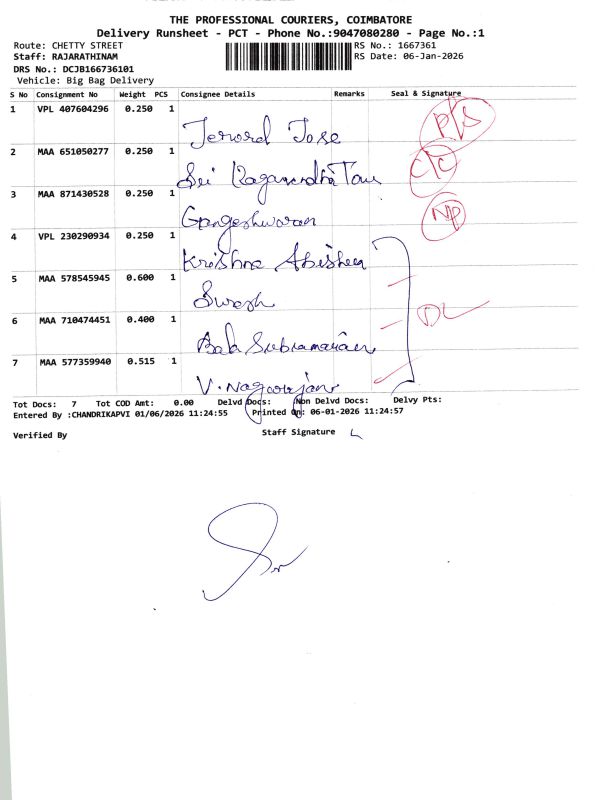 THE PROFESSIONAL COURIERS, COIMBATORE
Delivery Runsheet - PCT - Phone No.:9047080280 - Page No.:1
Route: CHETTY STREET RS No.: 1667361
Staff: RAJARATHINAM RS Date: 06-Jan-2026
DRS No.: DCJB166736101
Vehicle: Big Bag Delivery
S No Consignment No Weight PCS Consignee Details Remarks Seal & Signature
1 VPL 407604296 0.250 1
Jerord Jose P/S
2 MAA 651050277 0.250 1
Sri C/C
3 MAA 871430528 0.250 1
Gangeshwaran NP
4 VPL 230290934 0.250 1
Krishna
5 MAA 578545945 0.600 1
Suresh DL
6 MAA 710474451 0.400 1
Bala Subramanian
7 MAA 577359940 0.515 1
V. Nagarajan
Tot Docs: 7 Tot COD Amt: 0.00 Delvd Docs: Non Delvd Docs: Delvy Pts:
Entered By :CHANDRIKAPVI 01/06/2026 11:24:55 Printed On: 06-01-2026 11:24:57
Verified By Staff Signature